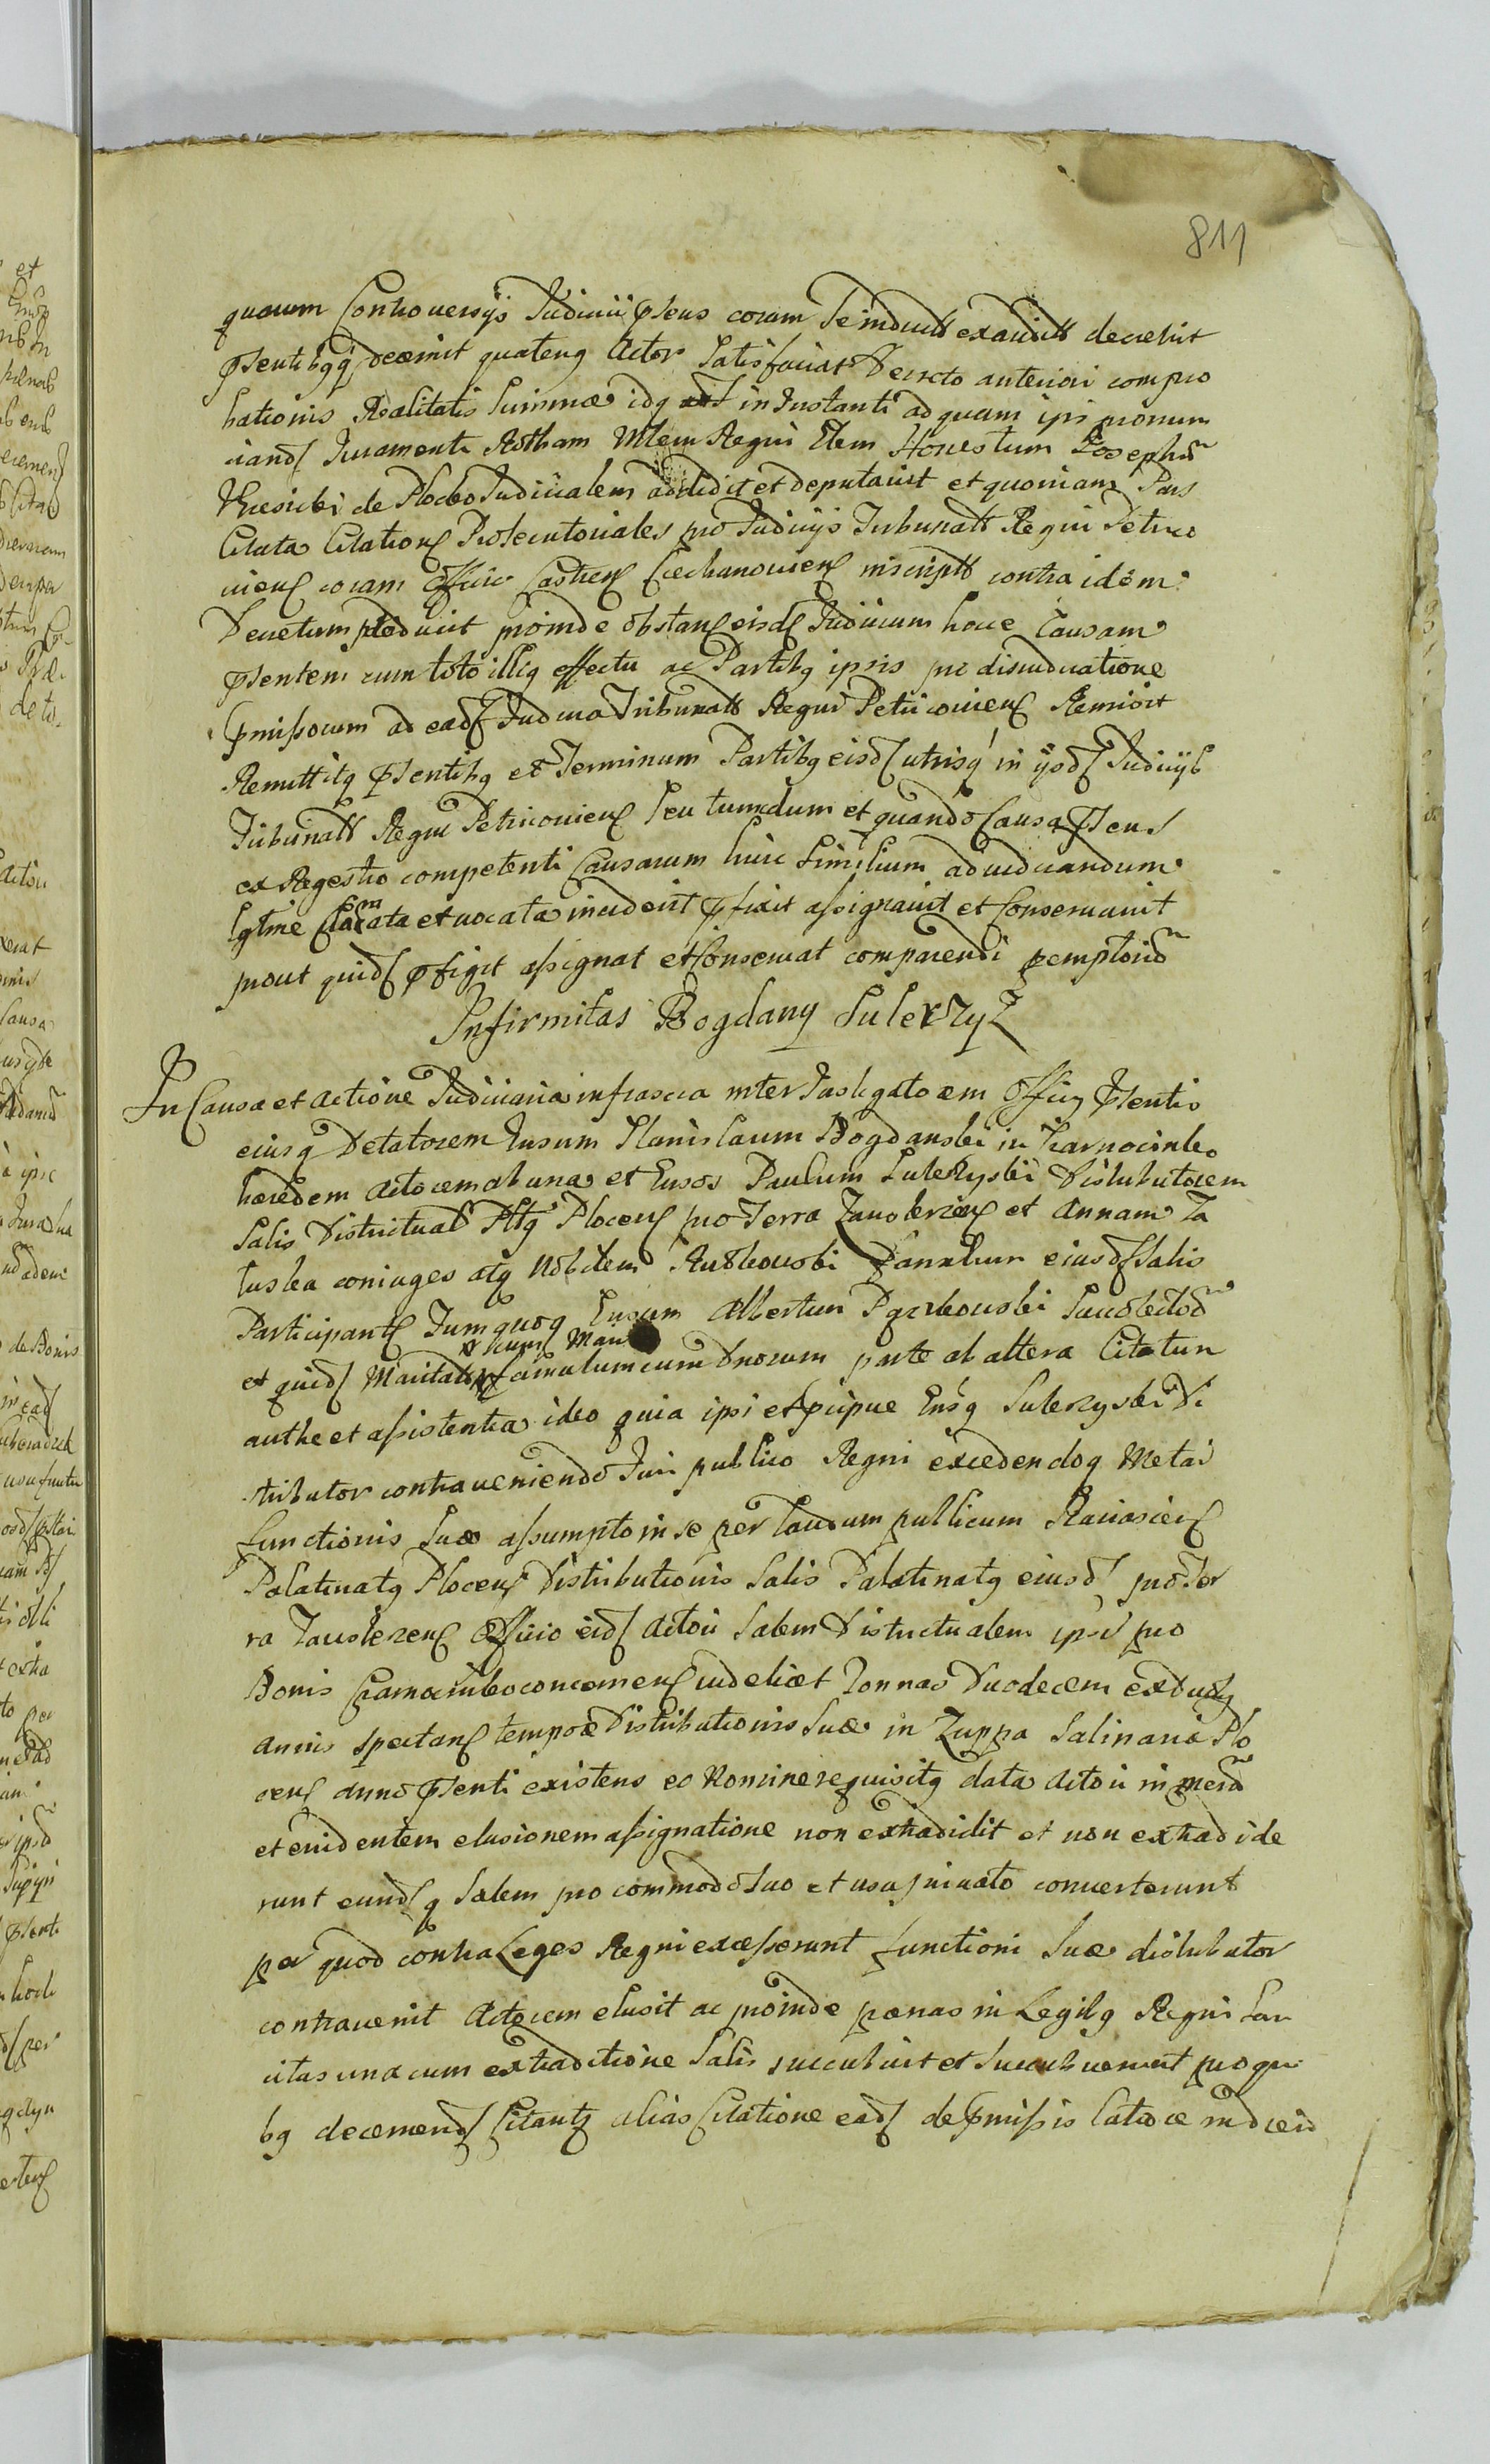 811
quarum Controversijs Judicium pñens coram se induct exaudit decrevit
pñentibqq decernit quatenq Actor satisfaciat Decreto anteriori compro
bationis Realitatis summæ idq in Instanti ad quam ipsi pronun
ciand Juramenti Rotham Mlem Regni Glem Honestum Josephū
de Plocko Judicialem addidit et deputavit et quoniam Pars
Citata Citationē Prosecutoriales pro Judicijs Tribunalt Regni Petrico
vienẽ coram officio Castrenẽ Ciechanovienẽ inscriptt contra idem
Decretum produxit proinde obstanẽ eisd Judicium hocce Causam
pñentem cum toto illiq effectu ac Partibq ipsis pro disiudicatione
pmissorum ad ead Judicia Tribunalt Regni Petricovienẽ Remisit
Remittitq pñentibq et Terminum Partibq eisd utrisq in ijsd Judicijs
Tribunalt Regni Petricovienẽ seu tum dum et quando Causa pñens
ex Regestro competenti Causarum huic similium adiudicandum
lgtme Clamata et vocata inciderit pfixit assignavit et Conservavit
prout quid pfigit assignat et Conservat comparendi pemptoriũ
Infirmitas Bogdany Sulerzyz
In Causa et actione Judiciaria infrascra inter Instigatorem officij pñentis
eiusq Delatorem Gnsum Stanislaum Bogdanski in Czarnocinko
hæredem Actorem ab una et Gnsos Paulum Sulerzyski Distributorem
Salis Districtual Pltq Plocenẽ pro Terra Zawskrzenẽ et Annam Za
luska coniuges atq Nobilem Rutkowski Famulum eiusd Salis
Participantẽ Tum quoq Gnsum Albertum Parkowski
et quid Maritalt famulum eum Dnorum parte ab altera Citatum
authe et assistentia ideo quia ipsi et pcipue Gnsq Sulerzyski Di
stributor contraveniendo Juri publico Regni excedendoq Metas
functionis suæ assumpto in se per Laudum publicum Raciasienẽ
Palatinatq Plocenẽ Distributionis Salis Palatinatq eiusd pro Ter
ra Zawskrzenẽ Officio eid Actori Salem Districtualem ipsi pro
Bonis Czarnocinko concernenẽ videlicet Tonnas Duodecem ex duobq
annis spectanẽ tempore Distributionis suæ in Zuppa Salinaria Plo
cenẽ anno pñenti existens eo Nomine requisitq data Actori in merã
et evidentem elusionem assignatione non extradidit et non extradide
runt eundq Salem pro commodo suo et usu privato converterunt
per quod contra Leges Regni excesserunt functioni suæ distributor
contravenit Actorem elusit ac proinde pænas in Legibq Regni san
citas una cum extraditione Salis succubuit et succubuerunt pro qui
bq decernend Citantq alias Citatione ead de pmissis latiore